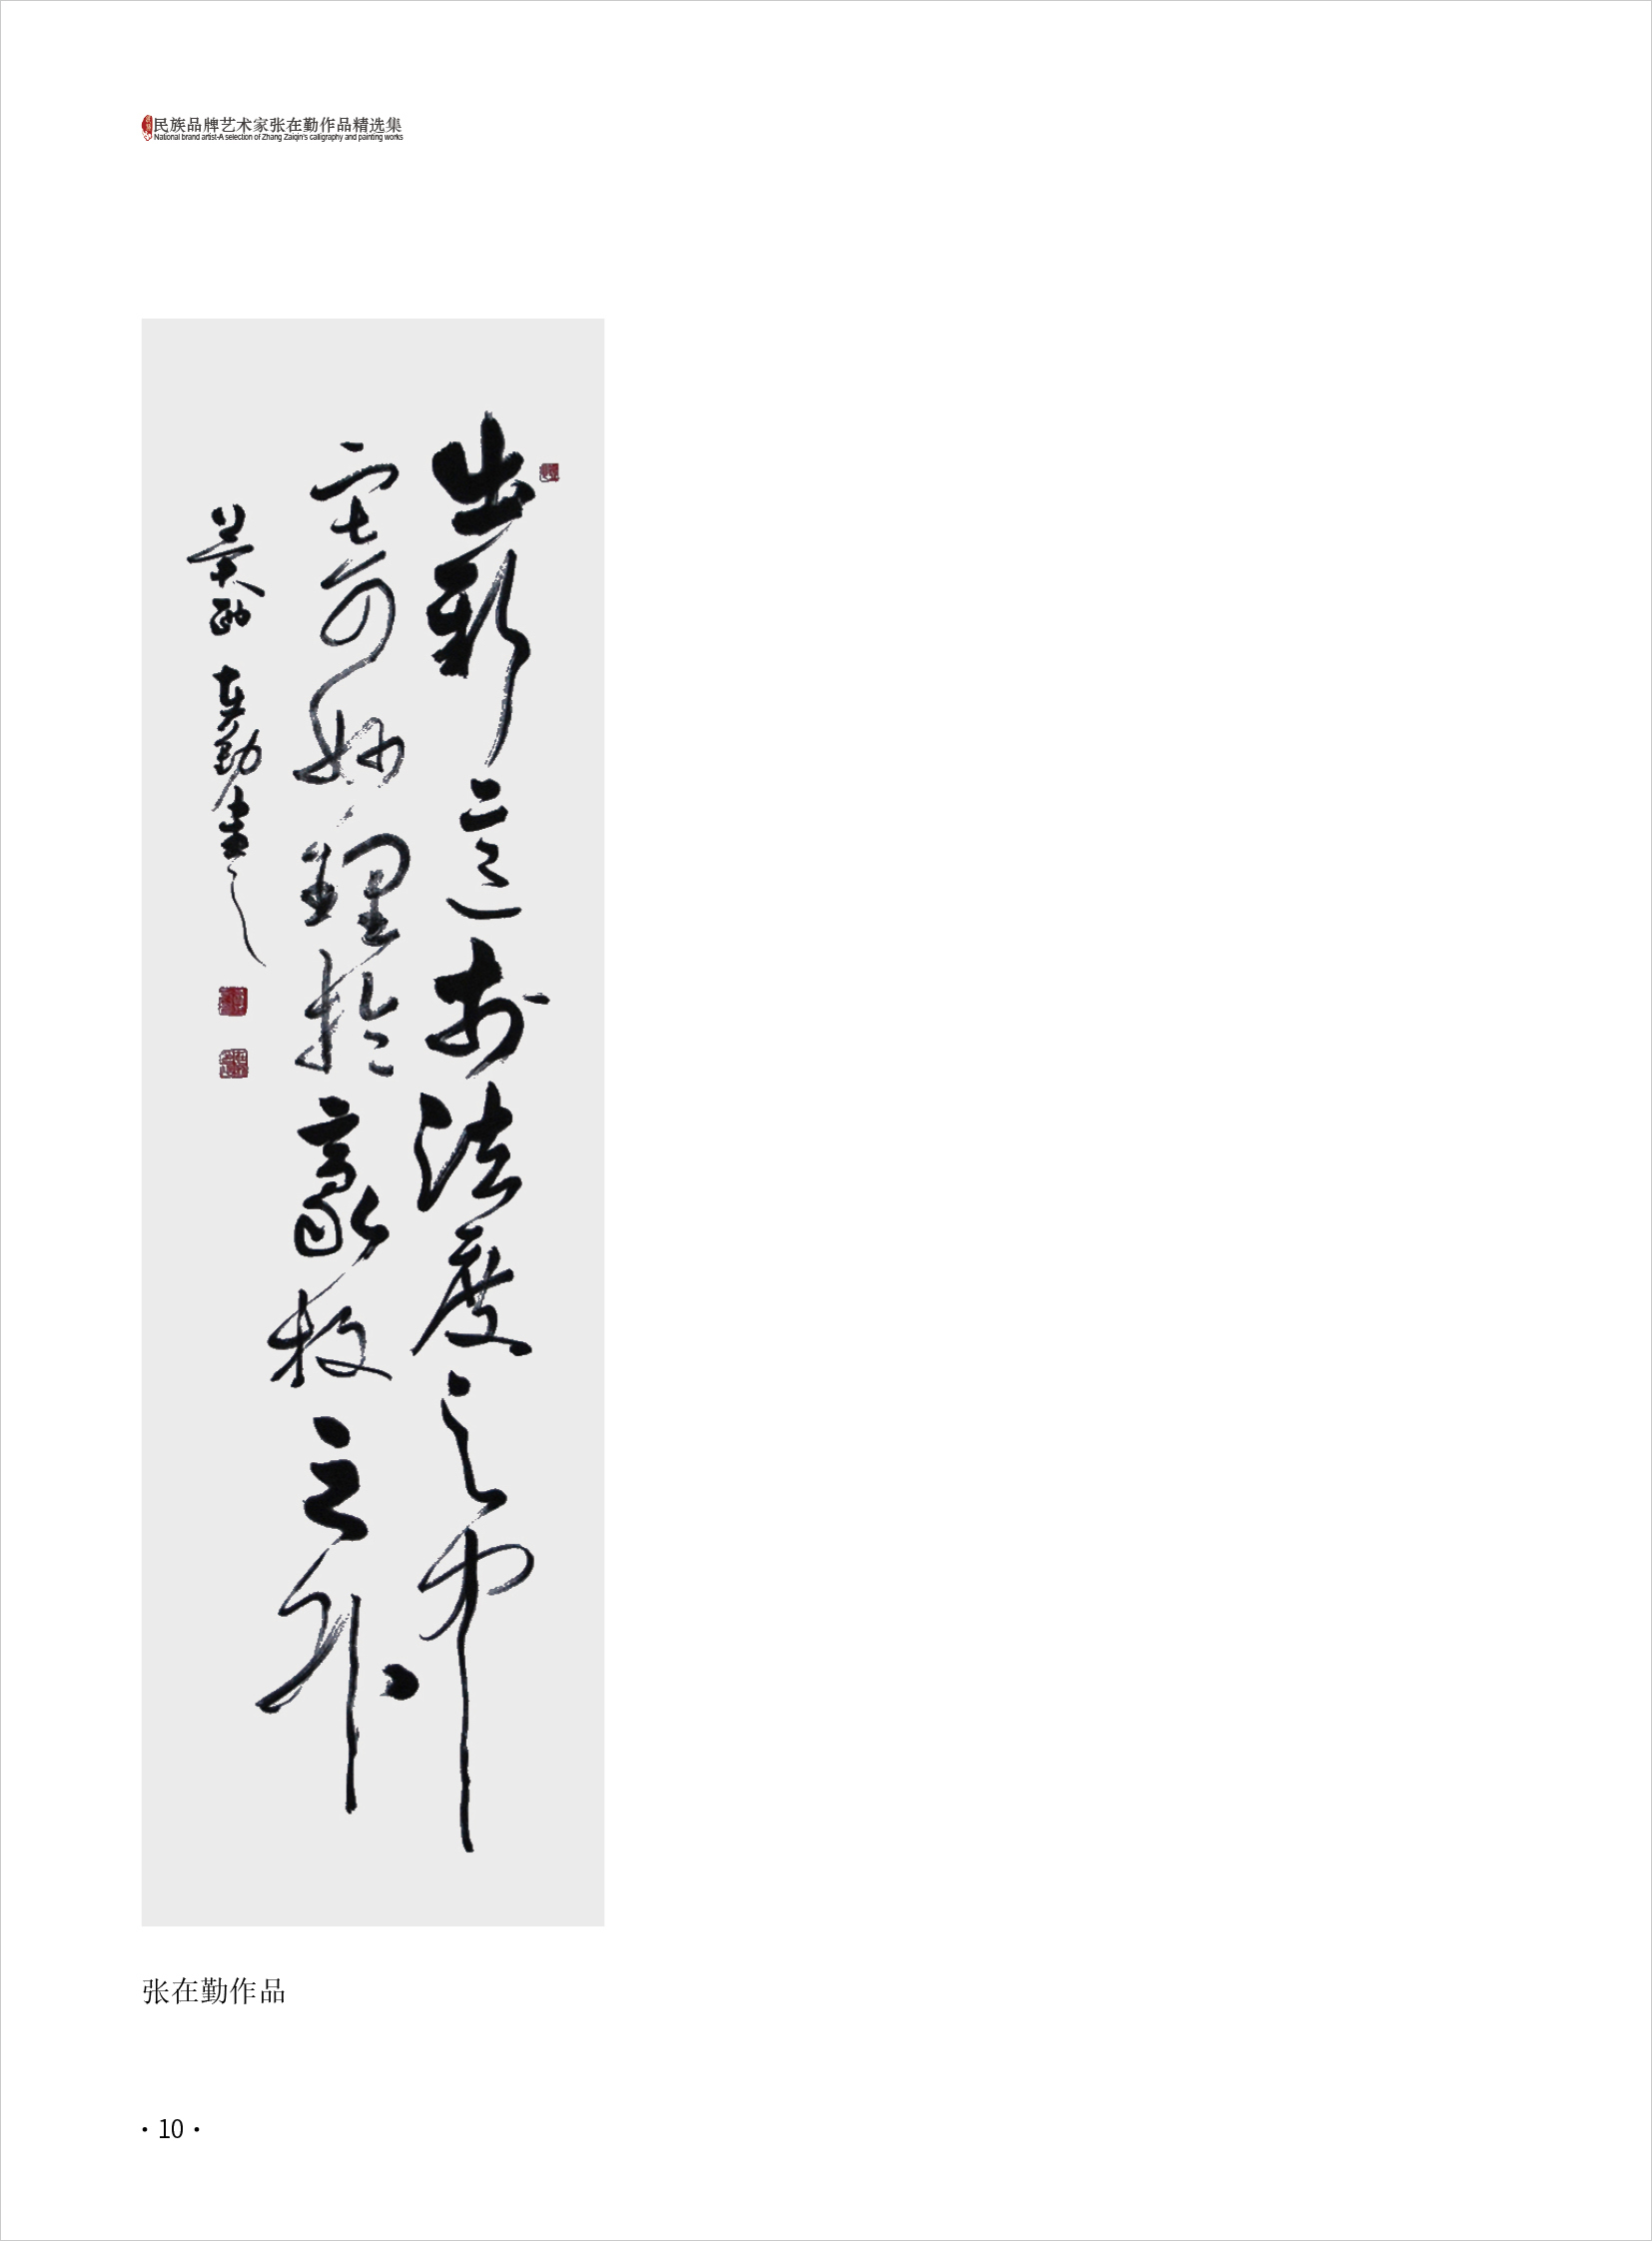 民族品牌艺术家张在勤作品精选集
National brand artist-A selection of Zhang Zaiqin's calligraphy and painting works
出新意於法度之中
寄妙理於豪放之外
在勤書
张在勤作品
· 10 ·